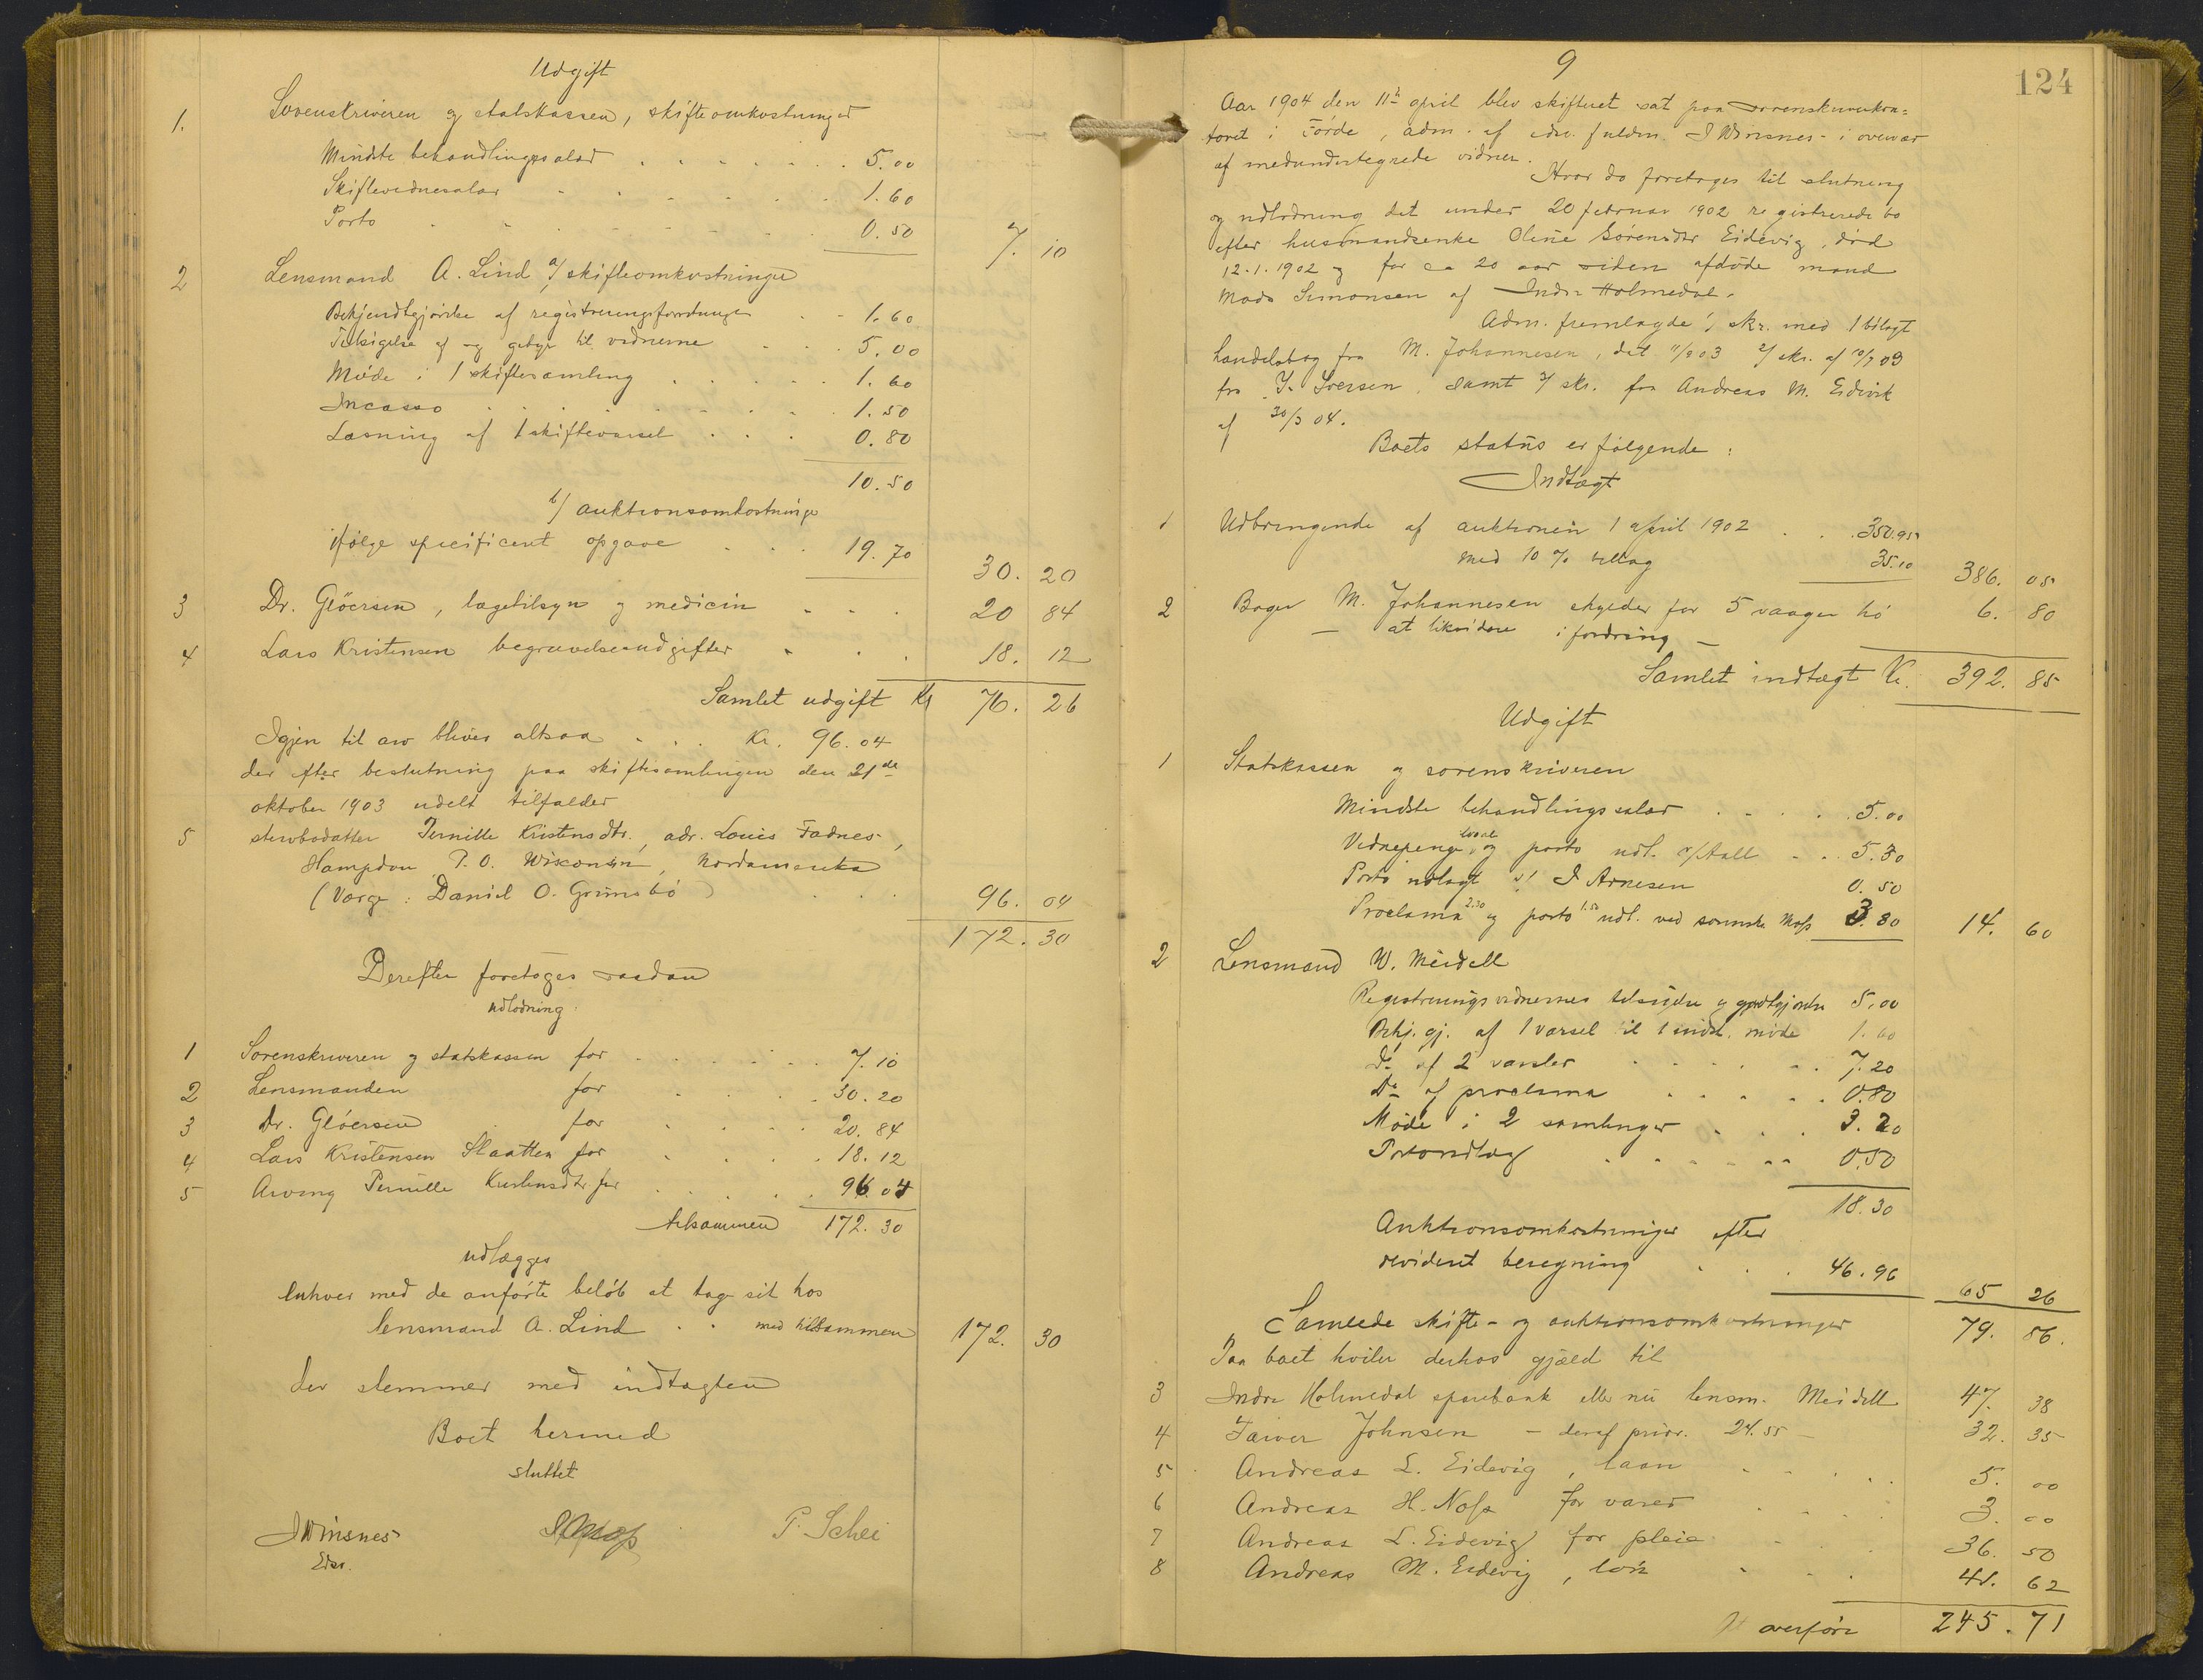 Udgift
1. Sorenskriveren og statskassen, skifteomkostninger
Mindste behandlingssalær . . . . . . 5.00
Skiftevidnesalær . . . . . . 1.60
Porto . . . . . . 0.50 7. 10
2 Lensmand A. Lind a/ skifteomkostninger
Bekjendtgjørelse af registreringsforretningen . . 1.60
Tilsigelse af og gebyr til vidnerne . . . 5.00
Møde i 1 skiftesamling . . . . . 1.60
Incasso . . . . . . . 1.50
Læsning af 1 skiftevarsel . . . 0.80
10.50
b/ auktionsomkostninger
ifølge specificeret opgave . . . 19.70 30. 20
3 Dr. Gløersen, lægetilsyn og medicin . . . 20 84
4 Lars Kristensen begravelsesudgifter . . . 18. 12
Samlet udgift Kr 76. 26
Igjen til arv bliver altsaa . . . Kr. 96.04
der efter beslutning paa skiftesamlingen den 21de
oktober 1903 udelt tilfalder
5 stervbodatter Pernille Kristensdtr., adr. Louis Fadnes,
Hampdon P.O. Wisconsin, Nordamerika
(Værge: Daniel O. Grimsbø) . . . 96. 04
172. 30
Derefter foretoges saadan
udlodning:
1 Sorenskriveren og statskassen for . . . . . . 7.10
2 Lensmanden for . . . . 30.20
3 Dr. Gløersen for . . . . 20.84
4 Lars Kristensen Slaatten for . . . . 18.12
5 Arving Pernille Kristensdtr for . . . . . 96.04
tilsammen 172.30
udlægges
enhver med de anførte beløb at tage sit hos
lensmand A. Lind . . med tilsammen 172. 30
der stemmer med indtægten
Boet hermed
sluttet
J Winsnes
Edsv.
P. Schei
9
124
Aar 1904 den 11te april blev skifteret sat paa sorenskriverkon=
toret i Førde, adm. af edsv. fuldm. J Winsnes - i overvær
af medundertegnede vidner.
Hvor da foretoges til slutning
og udlodning det under 20 februar 1902 registrerede bo
efter husmandsenke Oline Sørensdtr Eidevig, død
12.1.1902 og for ca 20 aar siden afdøde mand
Mads Simonsen af Indre Holmedal.
Adm. fremlagde 1/ skr. med 1 bilagt
handelsbog fra M. Johannesen, dat 11/9 03 2/ skr. af 10/9 03
fra J. Iversen, samt 3/ skr. fra Andreas M. Eidevik
af 30/3 04.
Boets status er følgende:
Indtægt
1 Udbringende af auktionen 1 april 1902 . . . 350.95
med 10 % tillæg 35.10 386. 05
2 Bager M. Johannesen skylder for 5 vaager hø 6. 80
— at likvidere i fordring —
Samlet indtægt Kr. 392. 85
Udgift
1 Statskassen og sorenskriveren
Mindste behandlingssalær . . . . . 5.00
Vidnepenge og porto udl. v/ Aall . . 5.30
Porto udlagt v/ I Arnesen 0.50
Proclama 2.30 og porto 1.50 udl. ved sorenskr. Moss 3.80 14. 60
2 Lensmand W. Meidell
Registreringsvidnernes tilsigelse og godtgjørelse 5.00
Bekj. gj. af 1 varsel til 1 indk. møde 1.60
Do af 2 varsler . . . . . 7.20
Do af proclama . . . . . 0.80
Møde i 2 samlinger . . . 3.20
Portoudlæg . . . . . . 0.50
18.30
Auktionsomkostninger efter
revideret beregning . . . 46.96 65 26
Samlede skifte- og auktionsomkostninger 79. 86.
Paa boet hviler derhos gjæld til
3 Indre Holmedal sparebank eller nu lensm. Meidell 47. 38
4 Taiver Johnsen - deraf prior. 24.55 - 32. 35
5 Andreas L. Eidevig, laan . . . . 5. 00
6 Andreas H. Noss for varer . . . . 3. 00
7 Andreas L. Eidevig for pleie . . . 36. 50
8 Andreas M. Eidevig, løn . . . 41. 62
At overføre 245. 71